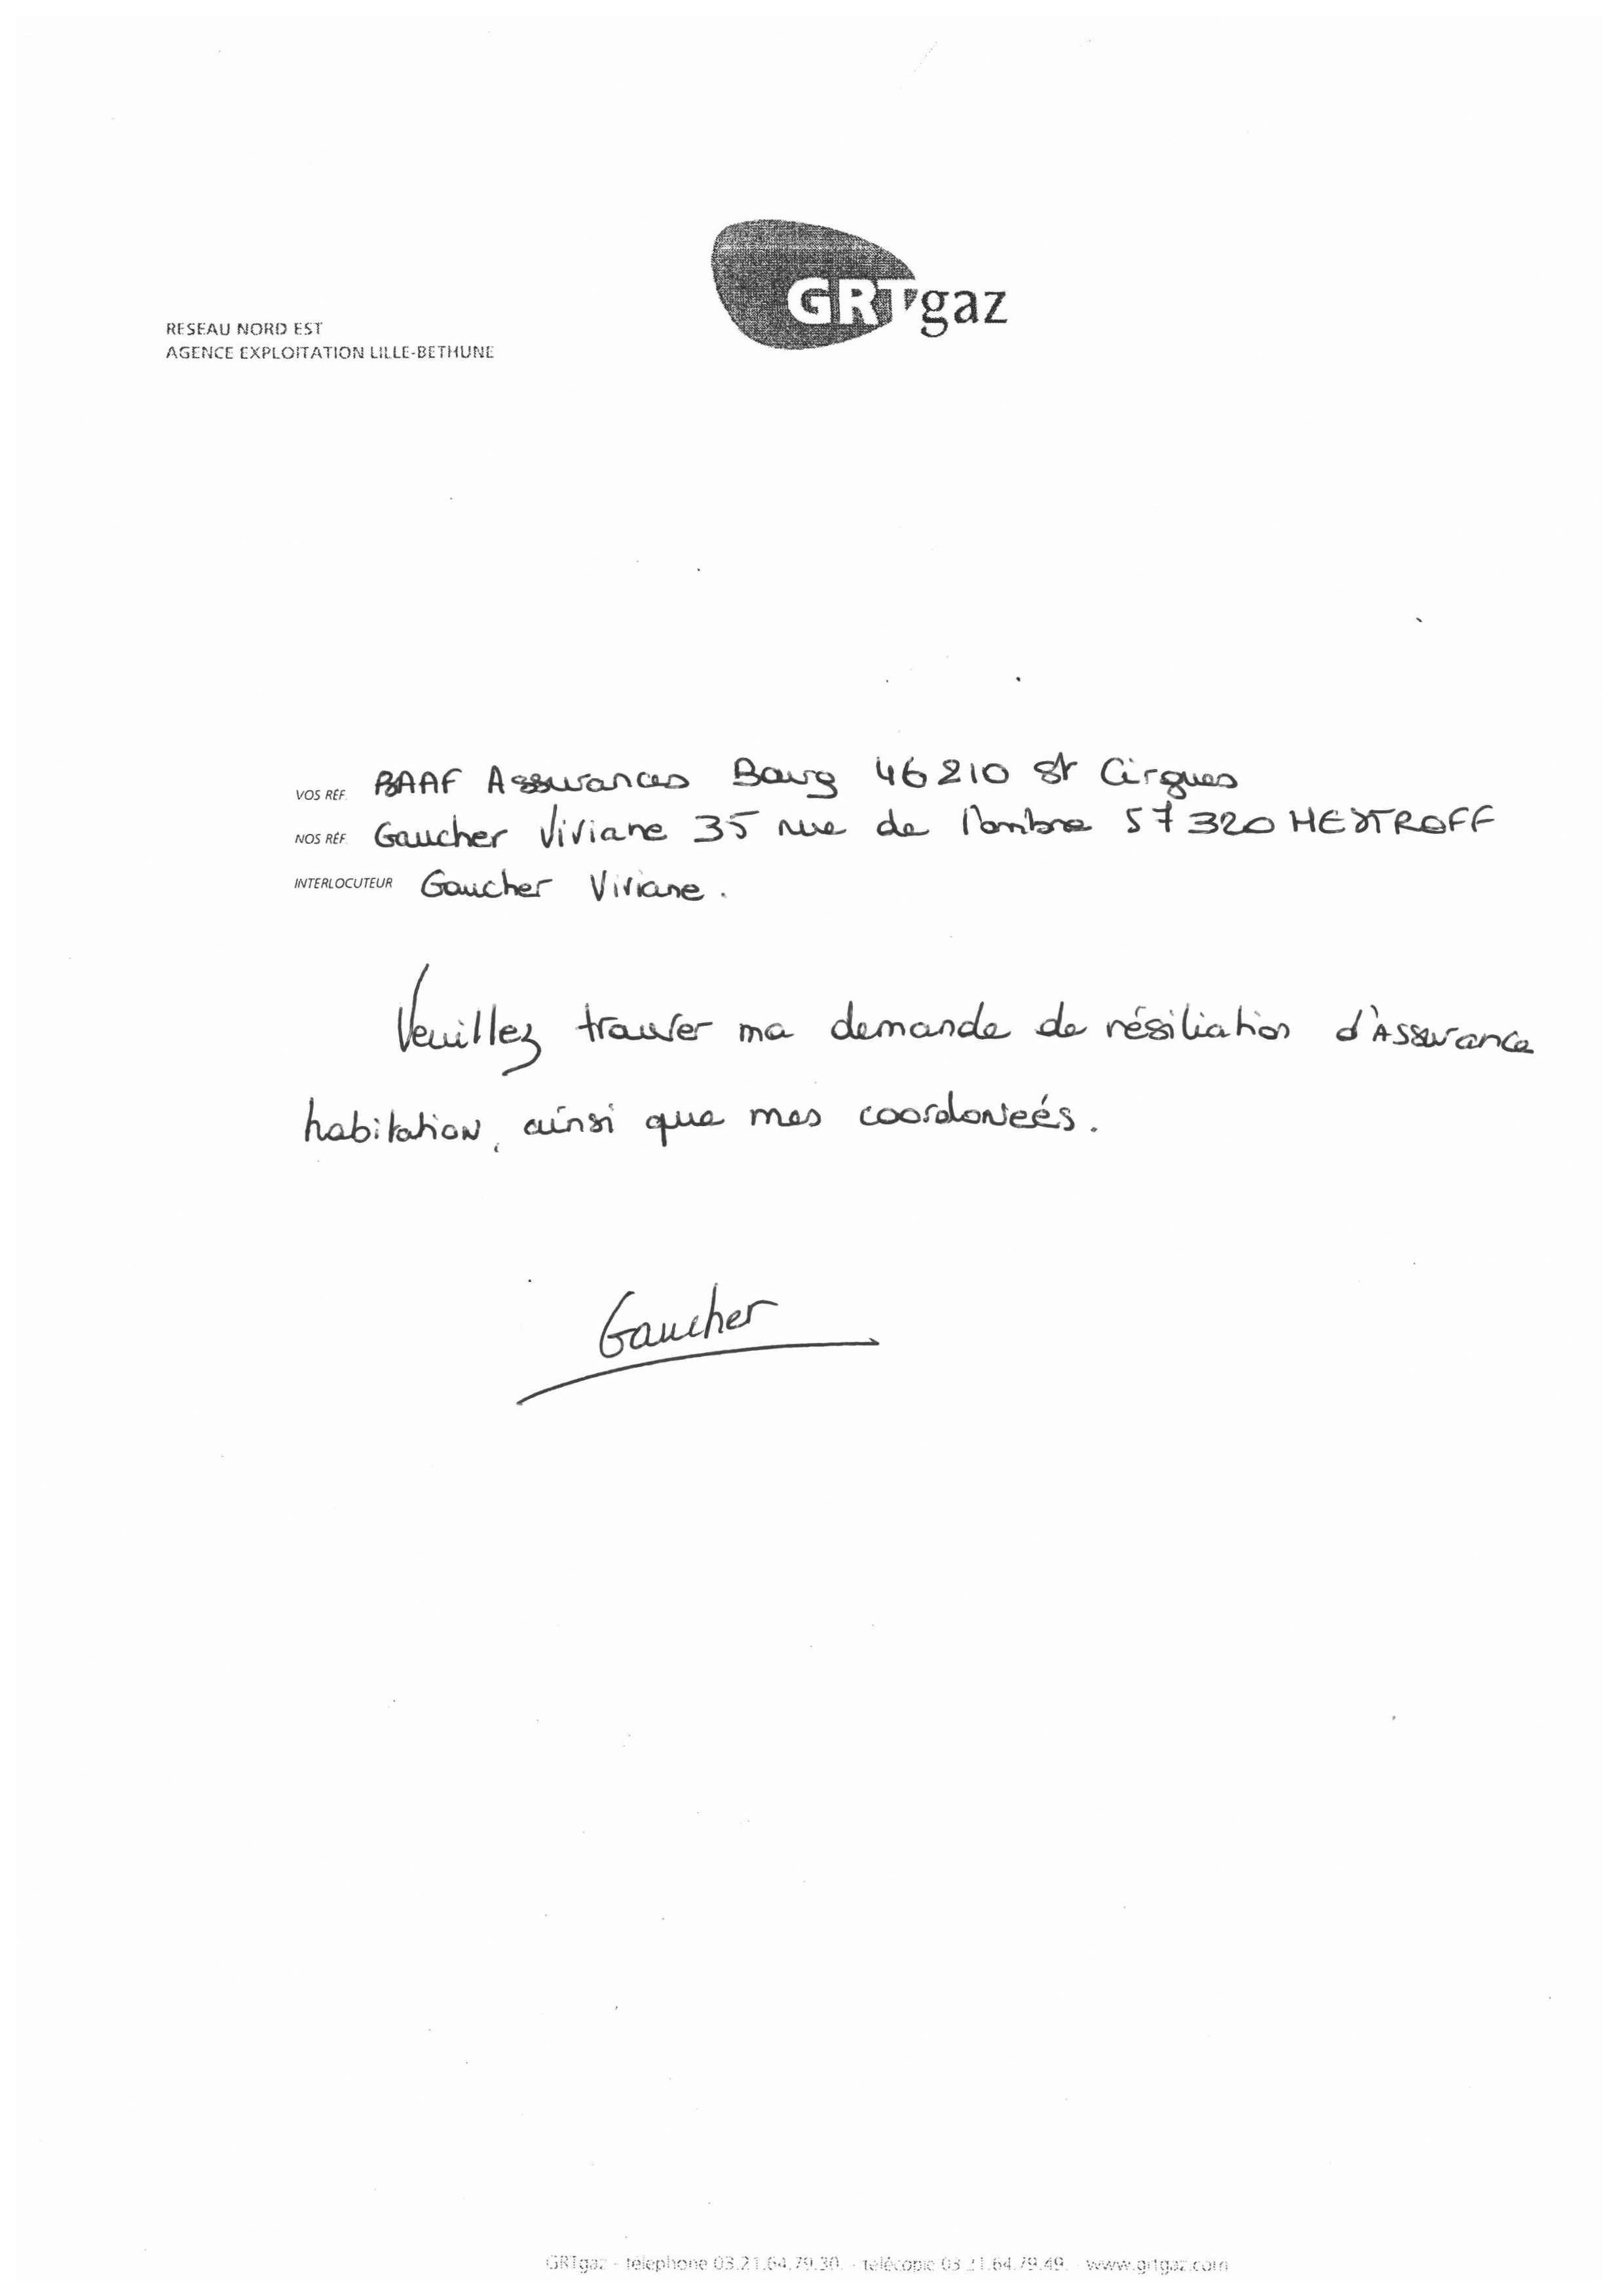 GRTgaz
RESEAU NORD EST
AGENCE EXPLOITATION LILLE-BETHUNE
VOS RÉF. BAAF Assurances Bourg 46210 St Cirgues
NOS RÉF. Gaucher Viviane 35 rue de l'ombre 57320 HESTROFF
INTERLOCUTEUR Gaucher Viviane.
Veuillez trouver ma demande de résiliation d'Assurance
habitation, ainsi que mes coordoneés.
Gaucher
GRTgaz - telephone 03.21.64.79.30. - télécopie 03.21.64.79.49. - www.grtgaz.com